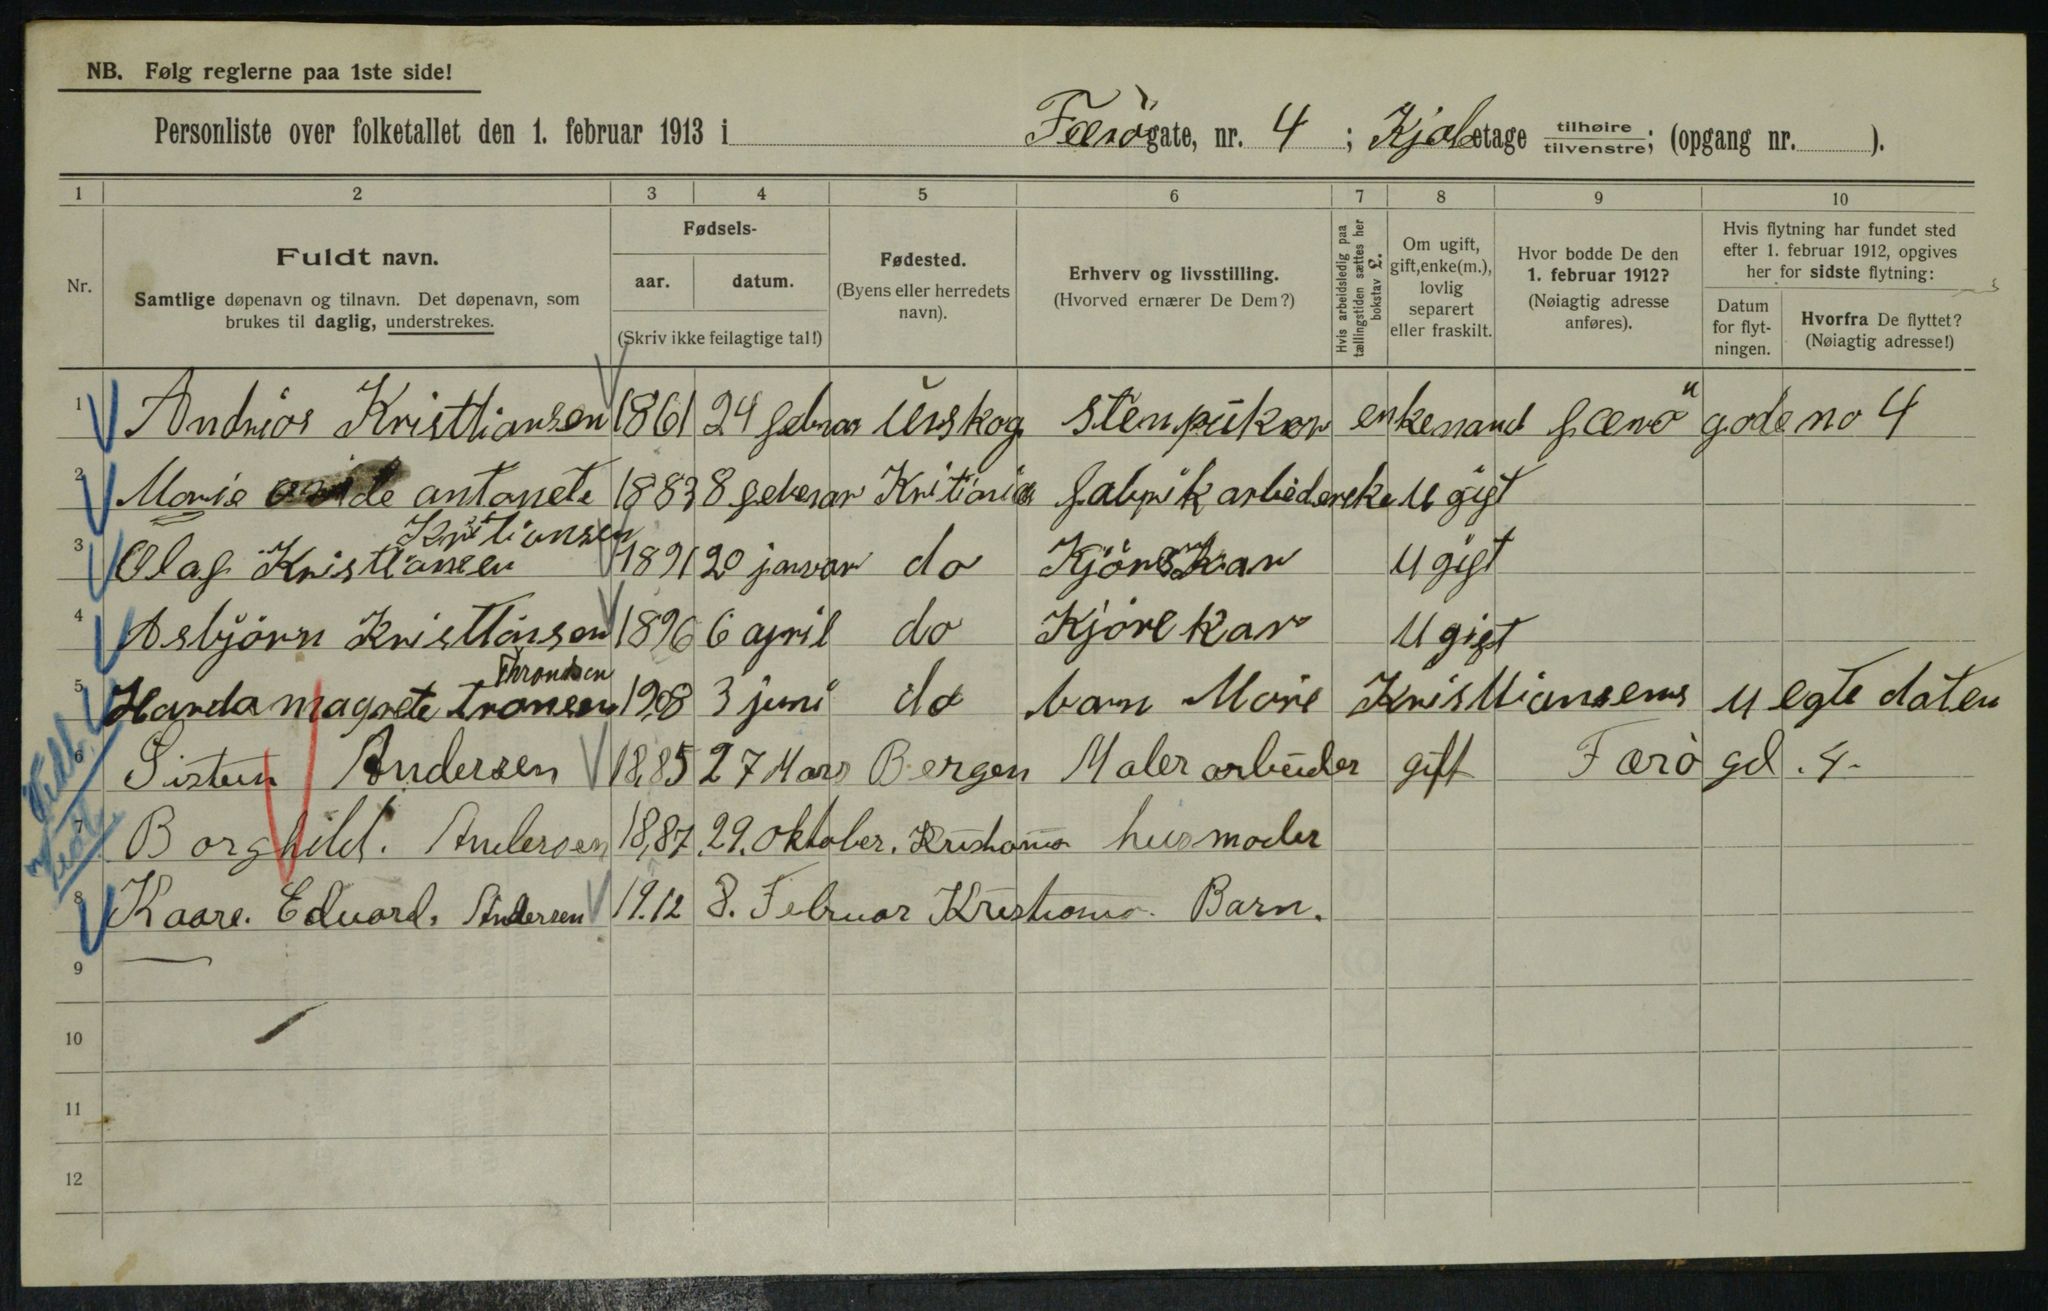 NB. Følg reglerne paa 1ste side!
Personliste over folketallet den 1. februar 1913 i Færögate, nr. 4 ; Kjoletage tilhøire tilvenstre; (opgang nr. ).
1 2 3 4 5 6 7 8 9 10
Nr.
Fuldt navn.
Samtlige døpenavn og tilnavn. Det døpenavn, som
brukes til daglig, understrekes.
Fødsels-
aar. datum.
(Skriv ikke feilagtige tal!)
Fødested.
(Byens eller herredets
navn).
Erhverv og livsstilling.
(Hvorved ernærer De Dem?)
Hvis arbeidsledig paa
tællingstiden sættes her
bokstav L.
Om ugift,
gift, enke(m.),
lovlig
separert
eller fraskilt.
Hvor bodde De den
1. februar 1912?
(Nøiagtig adresse
anføres).
Hvis flytning har fundet sted
efter 1. februar 1912, opgives
her for sidste flytning:
Datum
for flyt-
ningen.
Hvorfra De flyttet?
(Nøiagtig adresse!)
1 Andrios Kristtiansen 1861 24 febuar Urskog stenpukor enkemand færö gade no 4
2 Marie antonete 1883 8 febuar Kritiania fabrik arbiderske U gift
Kritiansen
3 Olaf Kristiansen 1891 20 januar do Kjörekar U gift
4 Asbjörn Kristtiansen 1896 6 april do Kjörekar U gift
Throndsen
5 Harda magrete tronsen 1908 3 juni do barn Marie Kristtiansens U egte daten
6 Sisten Andersen 18,85 27 Mars Bergen Maler arbeider gift Færö gd. 4.
7 Borghild. Andersen 18,87 29. Oktober. Kristiania husmoder
8 Kaare. Edvard. Andersen 19.12 8. Februar Kristiania. Barn.
9
10
11
12